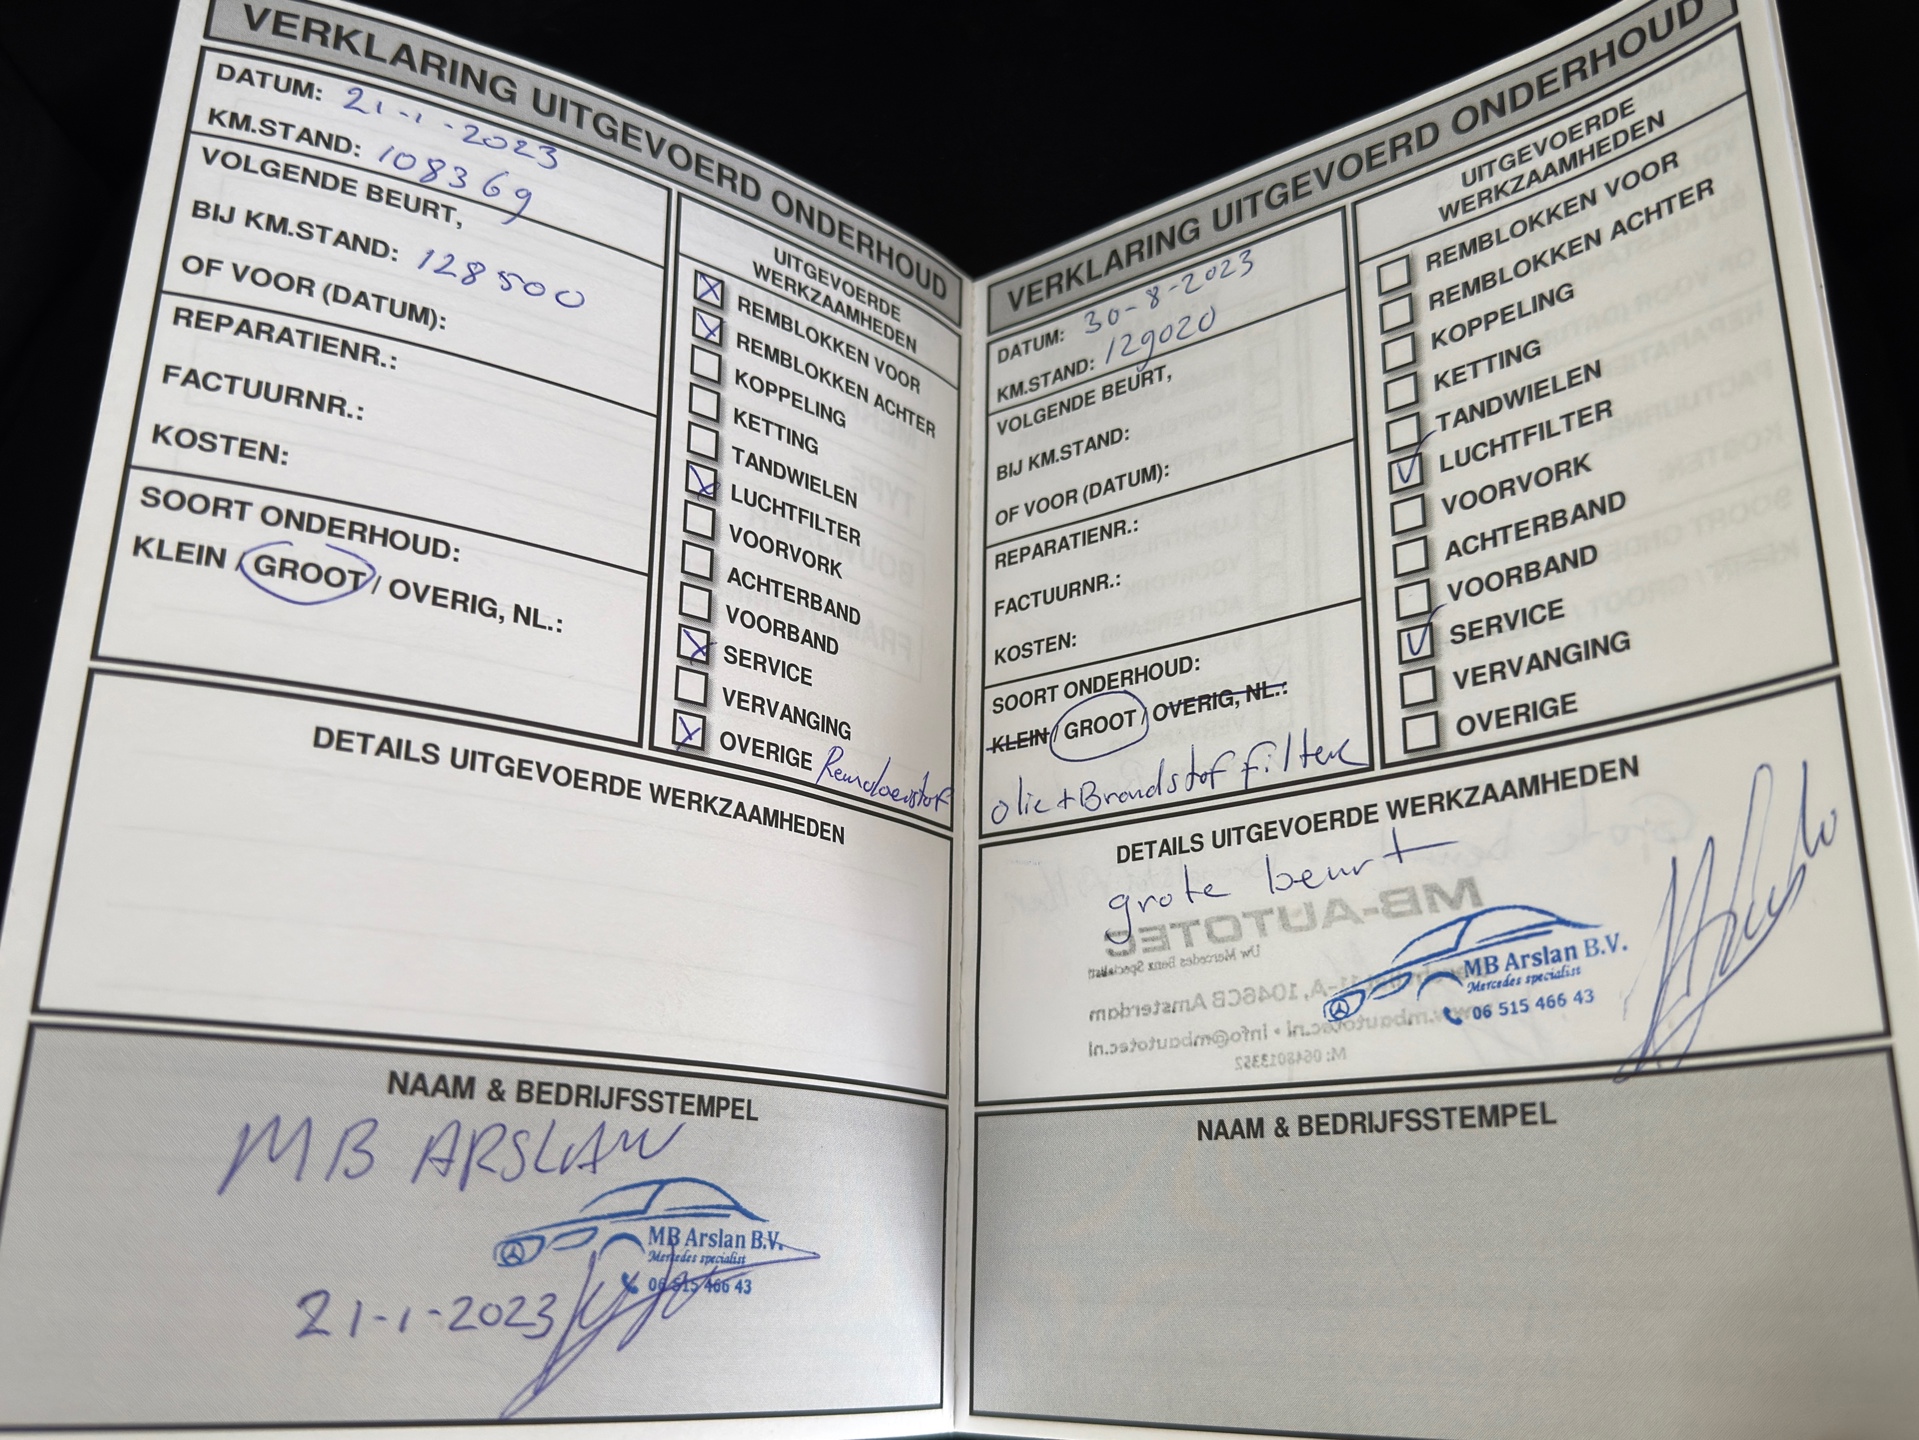 VERKLARING UITGEVOERD ONDERHOUD
DATUM: 21-1-2023
KM.STAND: 108369
VOLGENDE BEURT,
BIJ KM.STAND: 128500
OF VOOR (DATUM):
REPARATIENR.:
FACTUURNR.:
KOSTEN:
SOORT ONDERHOUD:
KLEIN / GROOT / OVERIG, NL.:
UITGEVOERDE
WERKZAAMHEDEN
REMBLOKKEN VOOR
REMBLOKKEN ACHTER
KOPPELING
KETTING
TANDWIELEN
LUCHTFILTER
VOORVORK
ACHTERBAND
VOORBAND
SERVICE
VERVANGING
OVERIGE Remvloeistof
DETAILS UITGEVOERDE WERKZAAMHEDEN
NAAM & BEDRIJFSSTEMPEL
MB ARSLAN
MB Arslan B.V.
Mercedes specialist
06 515 466 43
21-1-2023
VERKLARING UITGEVOERD ONDERHOUD
DATUM: 30-8-2023
KM.STAND: 129020
VOLGENDE BEURT,
BIJ KM.STAND:
OF VOOR (DATUM):
REPARATIENR.:
FACTUURNR.:
KOSTEN:
SOORT ONDERHOUD:
KLEIN / GROOT / OVERIG, NL.:
olie + Brandstof filter
UITGEVOERDE
WERKZAAMHEDEN
REMBLOKKEN VOOR
REMBLOKKEN ACHTER
KOPPELING
KETTING
TANDWIELEN
LUCHTFILTER
VOORVORK
ACHTERBAND
VOORBAND
SERVICE
VERVANGING
OVERIGE
DETAILS UITGEVOERDE WERKZAAMHEDEN
grote beurt
MB-AUTOTEC
Uw Mercedes Benz Specialist
MB Arslan B.V.
Mercedes specialist
06 515 466 43
1046CB Amsterdam
www.mbautotec.nl • info@mbautotec.nl
M: 0648013352
NAAM & BEDRIJFSSTEMPEL